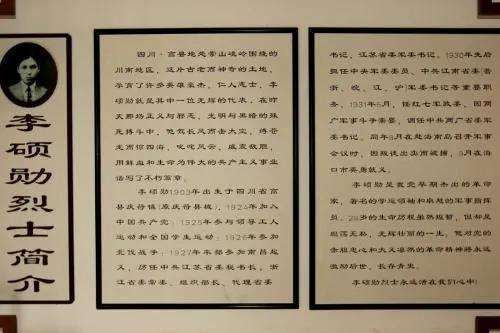 李硕勋烈士简介
四川·高县地处崇山峻岭围绕的
川南地区，这片古老而神奇的土地，
孕育了许多英雄豪杰、仁人志士，李
硕勋就是其中一位光辉的代表，在昨
天那场正义与邪恶、光明与黑暗的殊
死搏斗中，他驾长风而击太空，缚苍
龙而惊四海，叱咤风云，威震敌胆，
用鲜血和生命为伟大的共产主义事业
话写了不朽篇章。
李硕勋1903年出生于四川省高
县庆符镇（原庆符县城），1924年加入
中国共产党；1925年参与领导工人
运动和全国学生运动；1926年参加
北伐战争；1927年东部参加南昌起
义，历任中共江苏省委秘书长，浙
江省委常委、组织部长、代理省委
书记，江苏省委军委书记，1930年先后
担任中央军委委员、中共江南省委兼
浙、皖、江、沪军委书记等重要职
务，1931年5月，任红七军政委，因两
广军事斗争需要，调任中共两广省委军
委书记，同年8月在赴海南岛召开军事
会议时，因叛徒出卖而被捕，9月在海
口市英勇就义。
李硕勋是我党早期杰出的革命
家，著名的学运领袖和卓越的军事指挥
员，28岁的生命历程虽然短暂，但却是
坦荡无私、光辉壮丽的一生，他对党的
赤胆忠心和大义凛然的革命精神将永远
激励后世，长存青史。
李硕勋烈士永远活在我们心中！